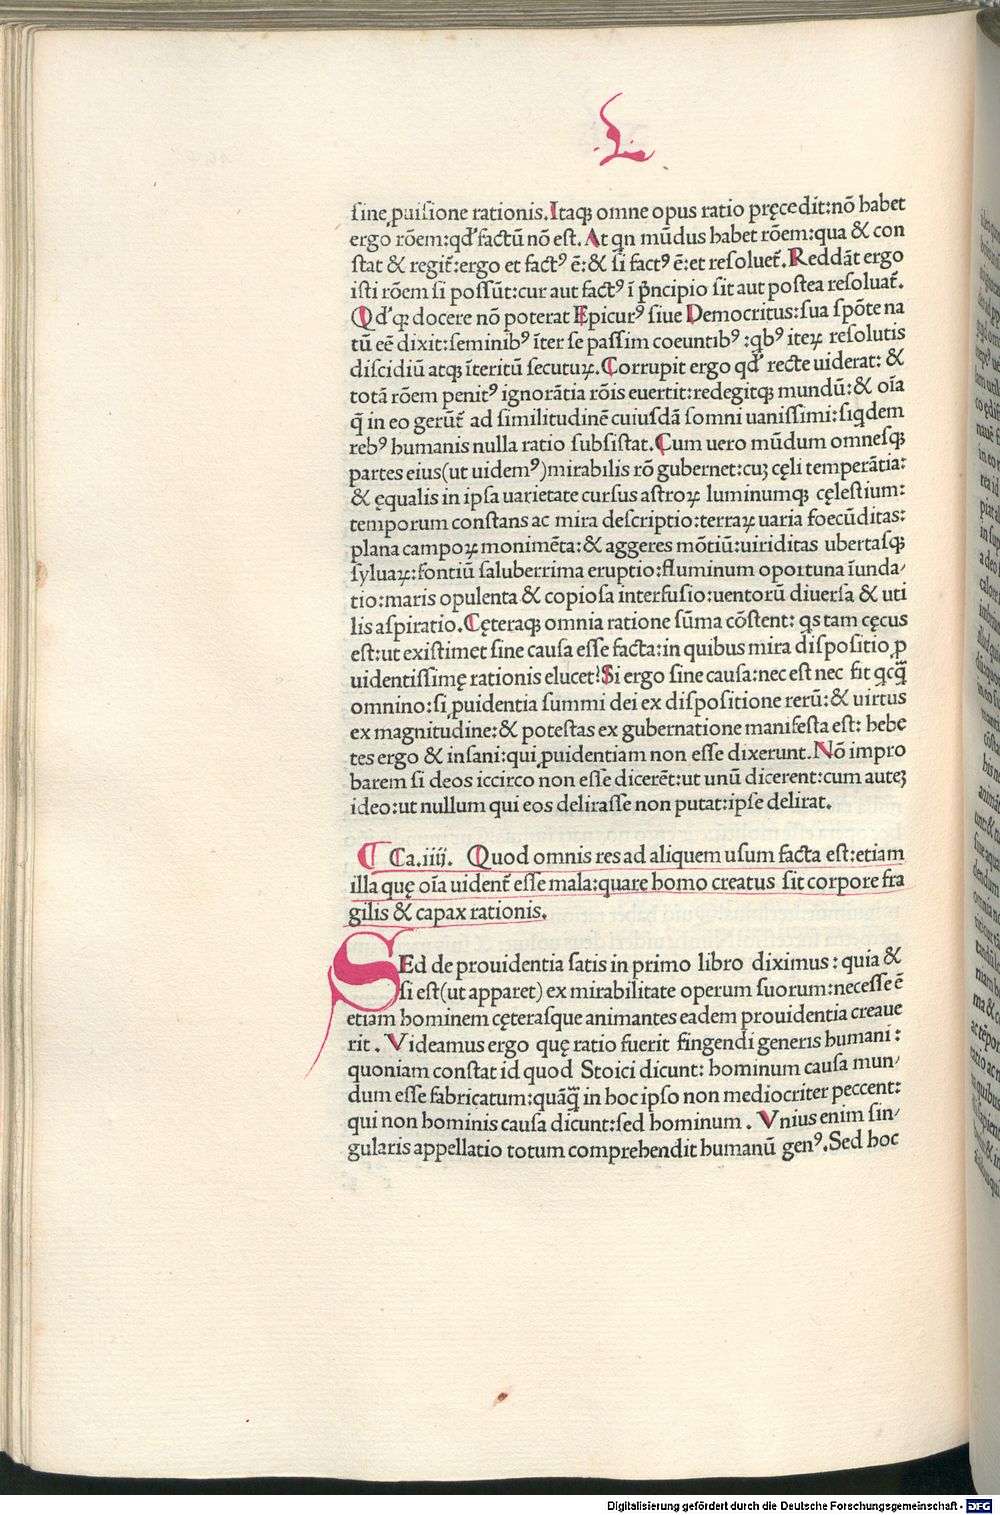 .L.
ſine ꝓuiſione rationis. Itaqꝫ omne opus ratio pręcedit: nō habet
ergo rōem: qd' factū nō est. At qn mūdus habet rōem: qua & con
ſtat & regit̄: ergo et factꝰ ē: & ſi factꝰ ē: et reſoluet̄. Reddāt ergo
iſti rōem ſi poſſūt: cur aut factꝰ ī p̄ncipio ſit aut poſtea reſoluat̄.
Qd'qꝫ docere nō poterat Epicurꝰ ſiue Democritus: ſua ſpōte na
tū eē dixit: ſeminibꝰ īter ſe paſſim coeuntibꝰ: qbꝰ iteꝝ reſolutis
diſcidiū atqꝫ īteritū ſecutuꝝ. Corrupit ergo qd' recte uiderat: &
totā rōem penitꝰ ignorātia rōis euertit: redegitqꝫ mundū: & oīa
q̄ in eo gerūt̄ ad ſimilitudinē cuiuſdā ſomni uaniſſimi: ſiqdem
rebꝰ humanis nulla ratio ſubſiſtat. Cum uero mūdum omneſqꝫ
partes eius (ut uidemꝰ) mirabilis rō gubernet: cuꝫ cęli temperātia:
& ęqualis in ipſa uarietate curſus aſtroꝝ luminumqꝫ cęleſtium:
temporum conſtans ac mira deſcriptio: terraꝝ uaria foecūditas:
plana campoꝝ monimēta: & aggeres mōtiū: uiriditas ubertaſqꝫ
ſyluaꝝ: fontiū ſaluberrima eruptio: fluminum oportuna īunda/
tio: maris opulenta & copioſa interfuſio: uentorū diuerſa & uti
lis aſpiratio. Cęteraqꝫ omnia ratione ſūma cōſtent: qs tam cęcus
eſt: ut exiſtimet ſine cauſa eſſe facta: in quibus mira diſpoſitio ꝓ
uidentiſſimę rationis elucet? Si ergo ſine cauſa: nec eſt nec fit qcq̄
omnino: ſi ꝓuidentia ſummi dei ex diſpoſitione rerū: & uirtus
ex magnitudine: & poteſtas ex gubernatione manifeſta eſt: hebe
tes ergo & inſani: qui ꝓuidentiam non eſſe dixerunt. Nō impro
barem ſi deos iccirco non eſſe dicerēt: ut unū dicerent: cum auteꝫ
ideo: ut nullum qui eos deliraſſe non putat: ipſe delirat.
¶ Ca. iiij. Quod omnis res ad aliquem uſum facta eſt: etiam
illa quę oīa uident̄ eſſe mala: quare homo creatus ſit corpore fra
gilis & capax rationis.
SEd de prouidentia ſatis in primo libro diximus: quia &
ſi eſt (ut apparet) ex mirabilitate operum ſuorum: neceſſe ē
etiam hominem cęteraſque animantes eadem prouidentia creaue
rit. Videamus ergo quę ratio fuerit fingendi generis humani:
quoniam conſtat id quod Stoici dicunt: hominum cauſa mun/
dum eſſe fabricatum: quāq̄ in hoc ipſo non mediocriter peccent:
qui non hominis cauſa dicunt: ſed hominum. Vnius enim ſin/
gularis appellatio totum comprehendit humanū genꝰ. Sed hoc
Digitalisierung gefördert durch die Deutsche Forschungsgemeinschaft - DFG